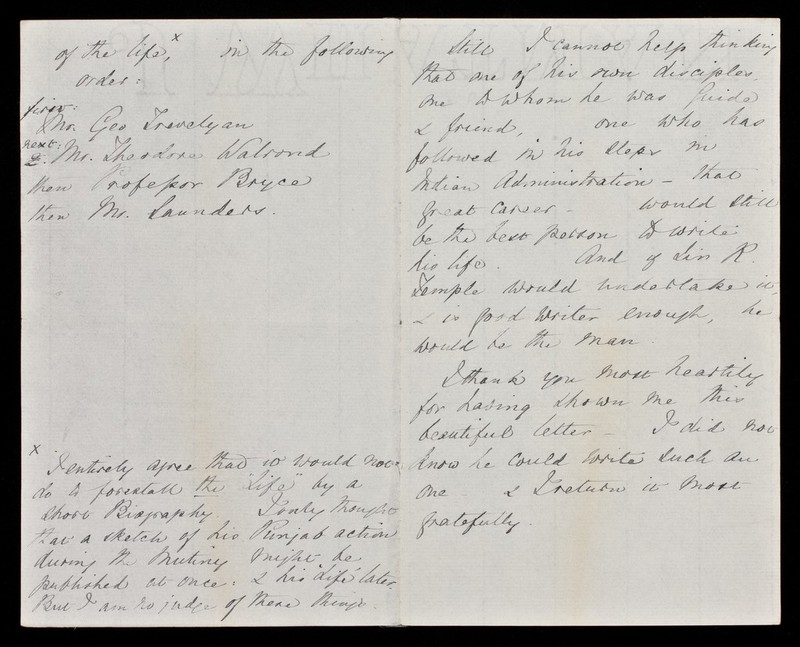 of the life,x in the following
order:
first:
Mr. Geo Trevelyan
next:
2. Mr. Theodore Walrond
then Professor Bryce
then Mr. Saunders.
x I entirely agree that it would not
do to forestall the "Life" by a
short Biography. I only thought
that a sketch of his Punjab action
during the Mutiny might be
published at once: & his "Life" later.
But I am no judge of these things.
Still I cannot help thinking
that one of his own disciples.
one to whom he was guide
& friend, one who has
followed in his steps in
Indian Administration - that
great career - would still
be the best person to write
his life. And if Sir R.
Temple would undertake it,
& is good writer enough, he
would be the man
I thank you most heartily
for having shown me this
beautiful letter - I did not
know he could write such an
one. & I return it most
gratefully.